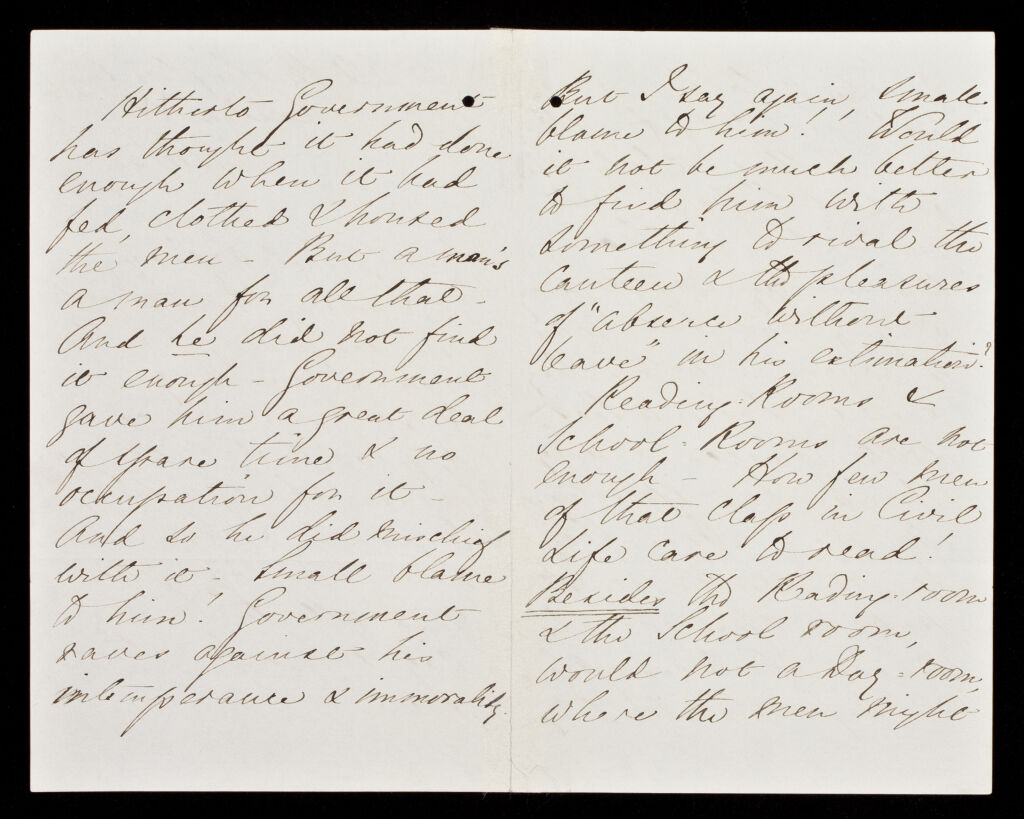 Hitherto Government
has thought it had done
enough when it had
fed, clothed & housed
the men - But a man's
a man for all that -
And he did not find
it enough - Government
gave him a great deal
of spare time & no
occupation for it -
And so he did mischief
with it - Small blame
to him! Government
raves against his
intemperance & immorality.
But I say again, small
blame to him! Would
it not be much better
to find him with
something to rival the
canteen & the pleasures
of "absence without
leave" in his estimation?
Reading-Rooms &
School-Rooms are not
enough - How few men
of that class in Civil
Life care to read!
Besides the Reading-room
& the School room,
would not a Day-room,
where the men might